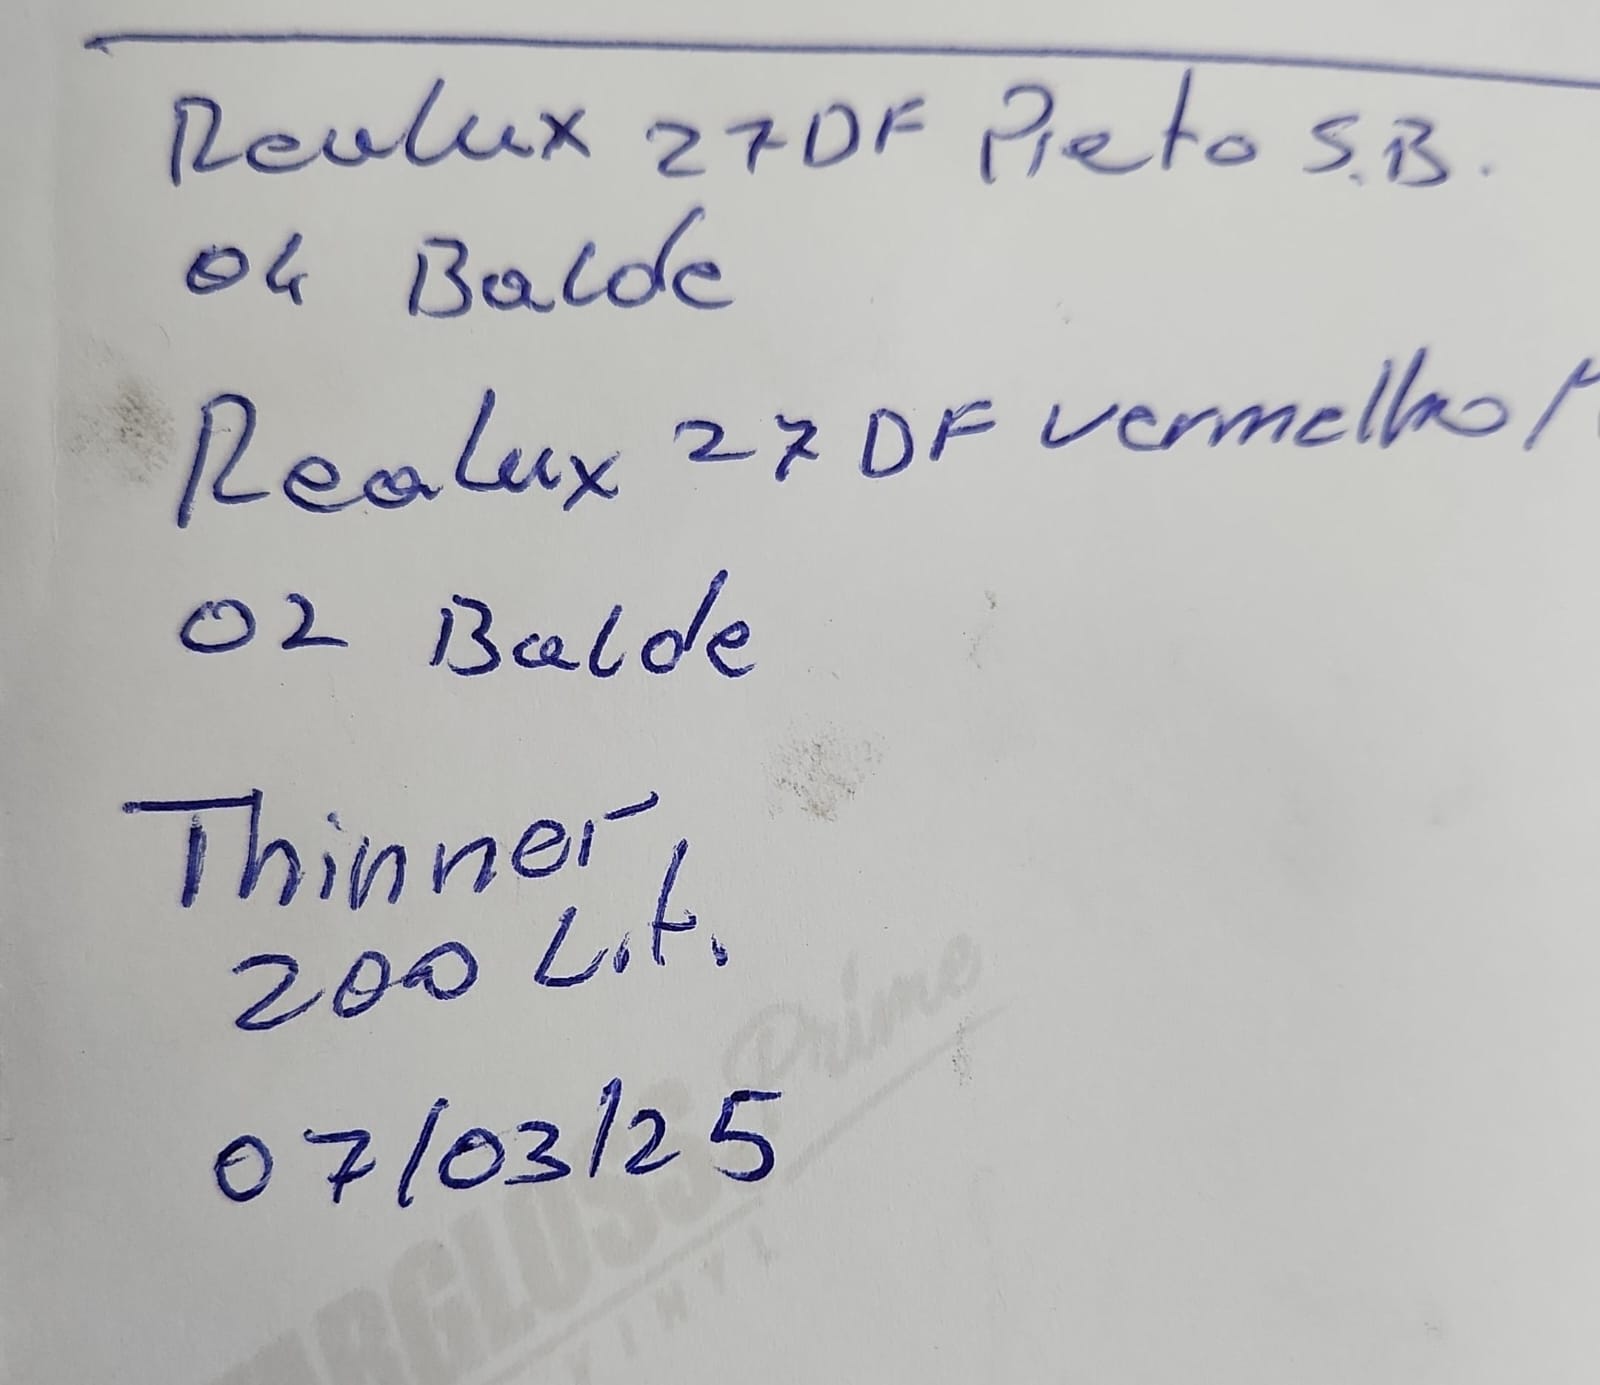 Realux 27DF Preto S.B.
04 Balde
Realux 27 DF vermelho
02 Balde
Thinner
200 Lit.
07/03/25
Prime
VINYL